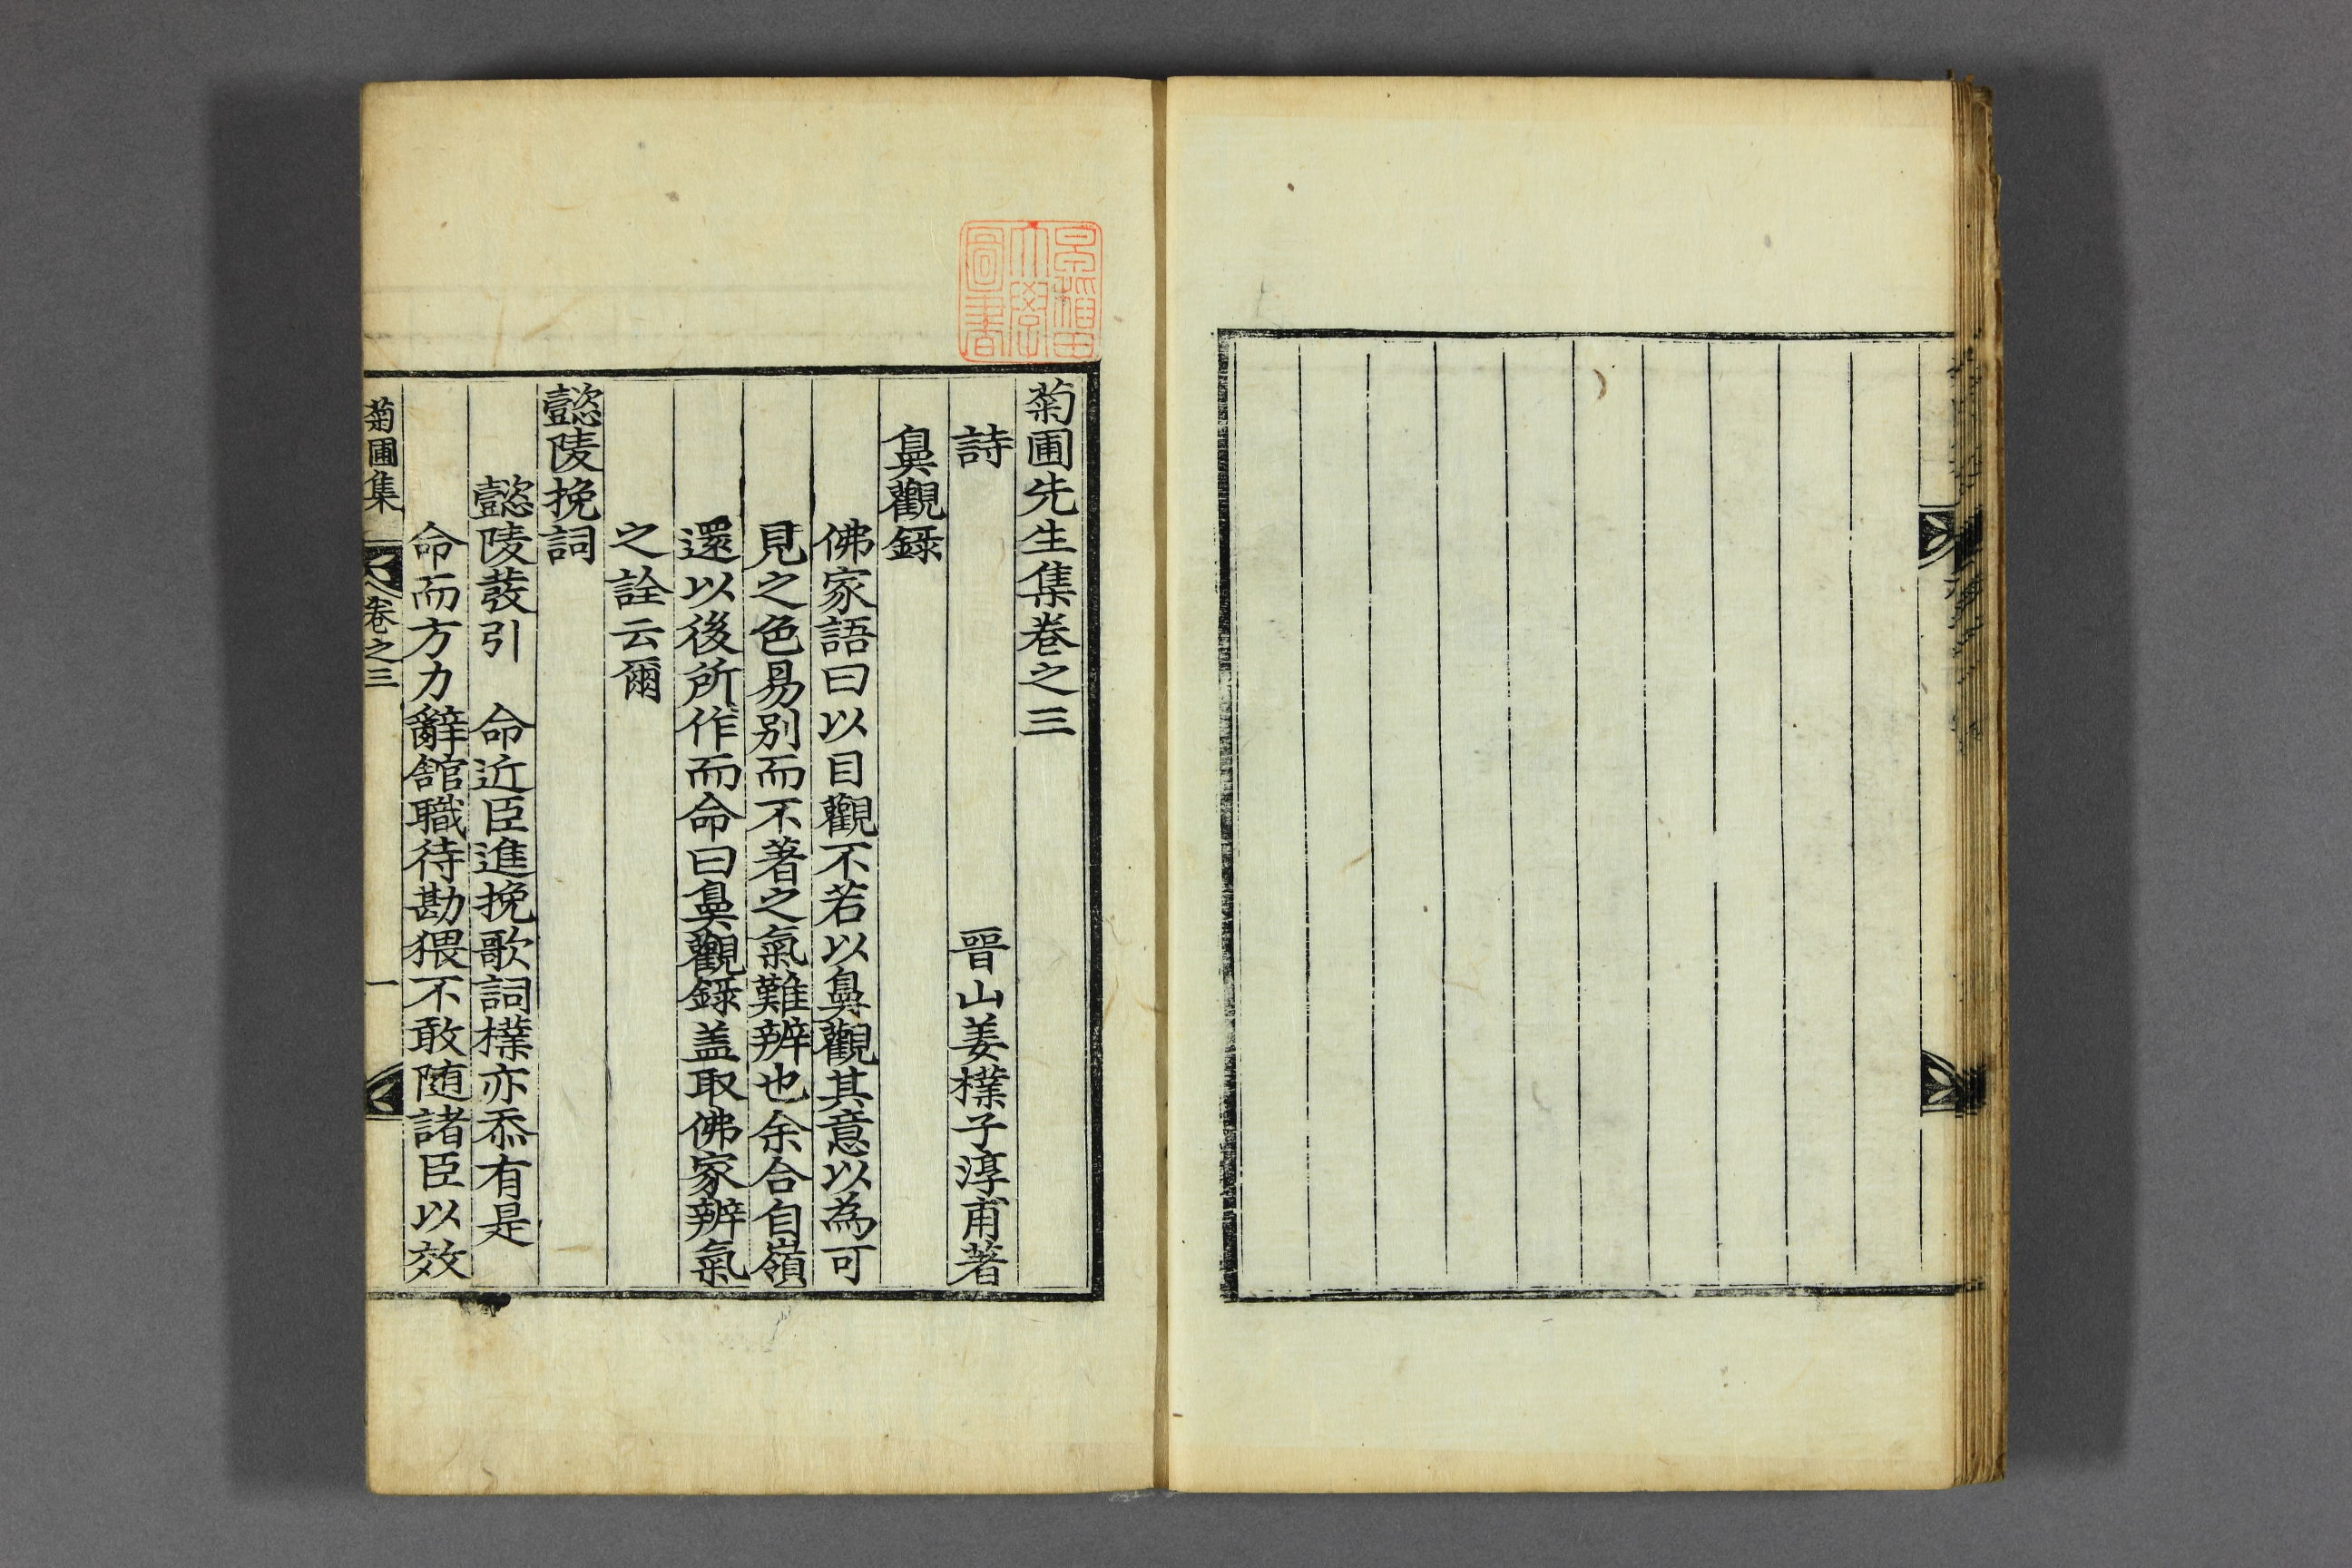 菊圃先生集卷之三
詩 晉山姜樸子淳甫著
鼻觀錄
佛家語曰以目觀不若以鼻觀其意以為可
見之色易別而不著之氣難辨也余合自嶺
還以後所作而命曰鼻觀錄盖取佛家辨氣
之詮云爾
懿陵挽詞
懿陵發引 命近臣進挽歌詞樸亦忝有是
命而方力辭舘職待勘猥不敢随諸臣以效
菊圃集 卷之三 一
早稲田大學圖書